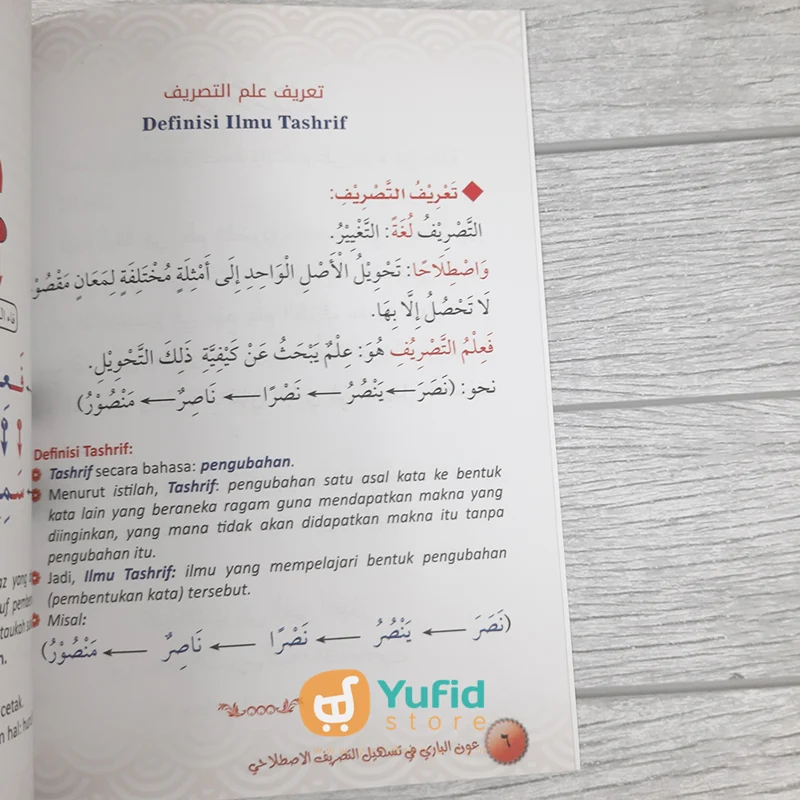 تعريف علم التصريف
Definisi Ilmu Tashrif
تَعْرِيْفُ التَّصْرِيْفِ:
التَّصْرِيْفُ لُغَةً: التَّغْيِيْرُ.
وَاصْطِلَاحًا: تَحْوِيْلُ الْأَصْلِ الْوَاحِدِ إِلَى أَمْثِلَةٍ مُخْتَلِفَةٍ لِمَعَانٍ
لَا تَحْصُلُ إِلَّا بِهَا.
فَعِلْمُ التَّصْرِيْفِ هُوَ: عِلْمٌ يَبْحَثُ عَنْ كَيْفِيَّةِ ذَلِكَ التَّحْوِيْلِ.
نحو: (نَصَرَ ← يَنْصُرُ ← نَصْرًا ← نَاصِرٌ ← مَنْصُوْرٌ)
Definisi Tashrif:
Tashrif secara bahasa: pengubahan.
Menurut istilah, Tashrif: pengubahan satu asal kata ke bentuk
kata lain yang beraneka ragam guna mendapatkan makna yang
diinginkan, yang mana tidak akan didapatkan makna itu tanpa
pengubahan itu.
Jadi, Ilmu Tashrif: ilmu yang mempelajari bentuk pengubahan
(pembentukan kata) tersebut.
Misal:
(نَصَرَ ← يَنْصُرُ ← نَصْرًا ← نَاصِرٌ ← مَنْصُوْرٌ)
Yufid
store
عون الباري في تسهيل التصريف الاصطلاحي
٦
yang
cetak.